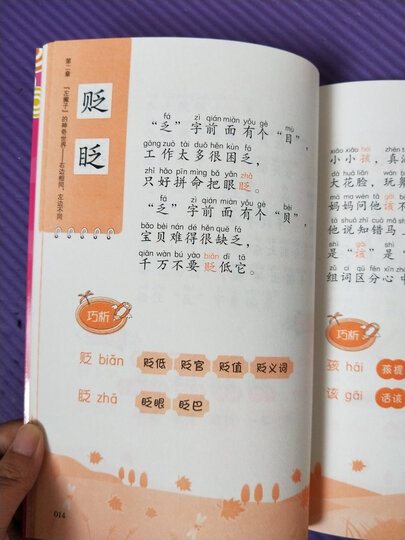 第二章 “左撇子”的神奇世界——右边相同，左边不同
贬
眨
fá zì qián miàn yǒu gè mù
“乏”字前面有个“目”，
gōng zuò tài duō hěn kùn fá
工作太多很困乏，
zhǐ hǎo pīn mìng bǎ yǎn zhǎ
只好拼命把眼眨。
fá zì qián miàn yǒu gè bèi
“乏”字前面有个“贝”，
bǎo bèi nán dé hěn quē fá
宝贝难得很缺乏，
qiān wàn bú yào biǎn dī tā
千万不要贬低它。
巧析
贬 biǎn 贬低 贬官 贬值 贬义词
眨 zhǎ 眨眼 眨巴
014
xiǎo xiǎo hái
小小孩，真
大花脸，玩
mā ma wèn tā gāi
妈妈问他该
tā shuō zhī cuò mǎ
他说知错马
shì gāi shì
是“该”是“
zǔ cí qū fēn xīn zhōng
组词区分心中
巧析
孩 hái 孩提
该 gāi 话该